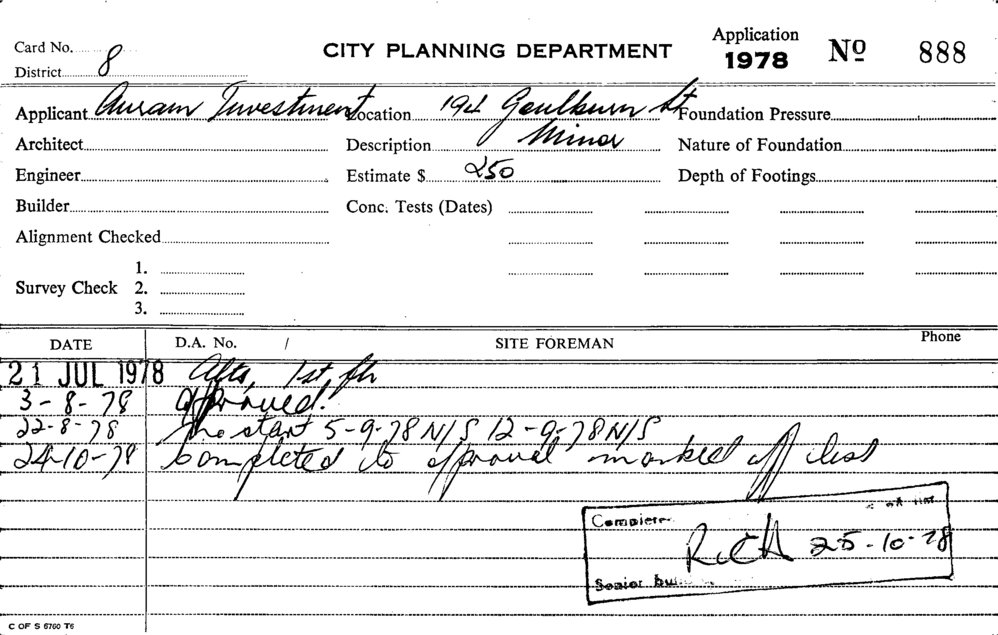 Card No. 8 CITY PLANNING DEPARTMENT Application 1978 Nº 888
District
Applicant Auram Investment Location 194 Goulburn St Foundation Pressure
Architect Description Minor Nature of Foundation
Engineer Estimate $ 250 Depth of Footings
Builder Conc. Tests (Dates)
Alignment Checked
1.
Survey Check 2.
3.
DATE D.A. No. / SITE FOREMAN Phone
21 JUL 1978 Alts, 1st flr
3-8-78 approved.
22-8-78 No start 5-9-78 N/S 12-9-78 N/S
24-10-78 Completed to approval marked off list
Complete
25-10-78
Senior
C OF S 6760 T6